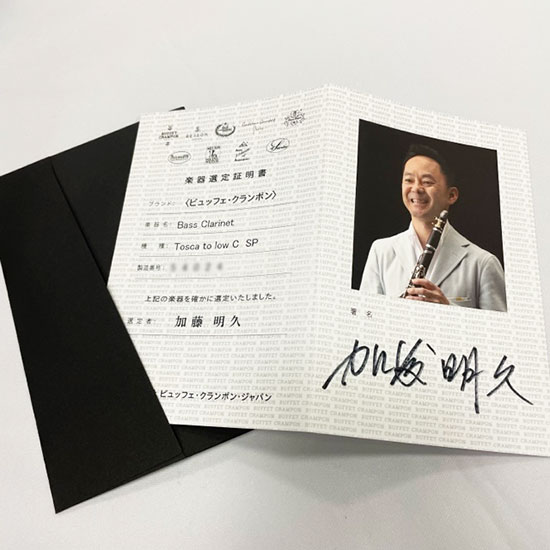 BUFFET
CRAMPON
BESSON
楽器選定証明書
ブランド: 〈ビュッフェ・クランポン〉
楽器名: Bass Clarinet
機種: Tosca to low C SP
製造番号:
上記の楽器を確かに選定いたしました。
選定者: 加藤 明久
ビュッフェ・クランポン・ジャパン
署名
加藤明久